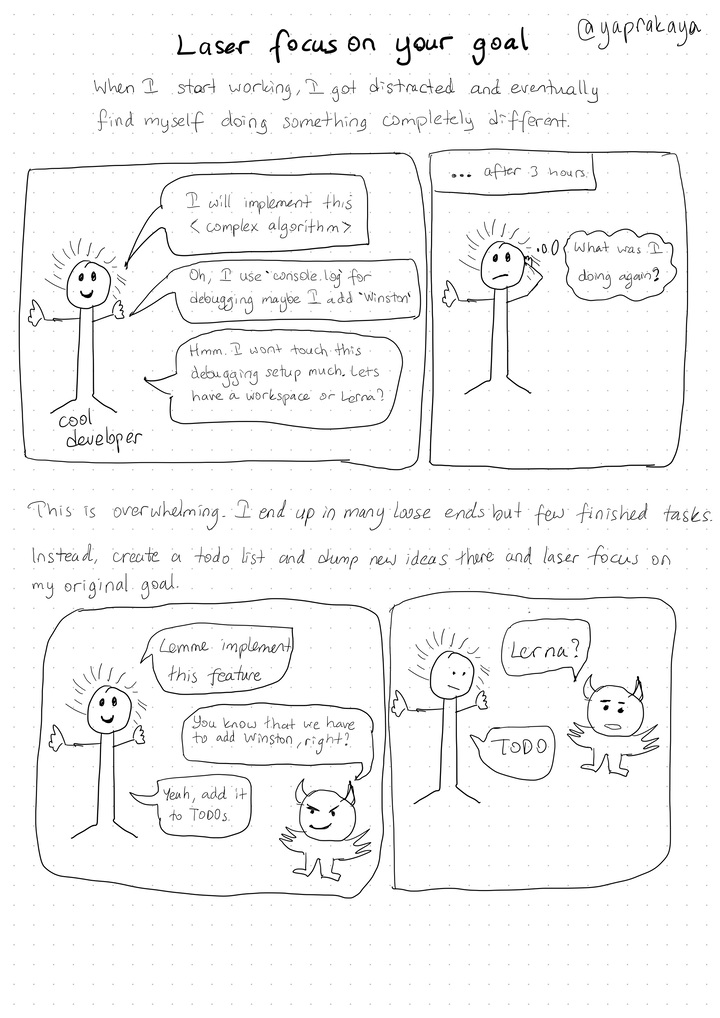 @yaprakaya
Laser focus on your goal
When I start working, I got distracted and eventually
find myself doing something completely different.
I will implement this
<complex algorithm>
Oh, I use `console.log` for
debugging maybe I add `Winston`
Hmm. I wont touch this
debugging setup much. Lets
have a workspace or Lerna?
cool
developer
... after 3 hours.
What was I
doing again?
This is overwhelming. I end up in many loose ends but few finished tasks.
Instead, create a todo list and dump new ideas there and laser focus on
my original goal.
Lemme implement
this feature
You know that we have
to add Winston, right?
Yeah, add it
to TODOs.
Lerna?
TODO